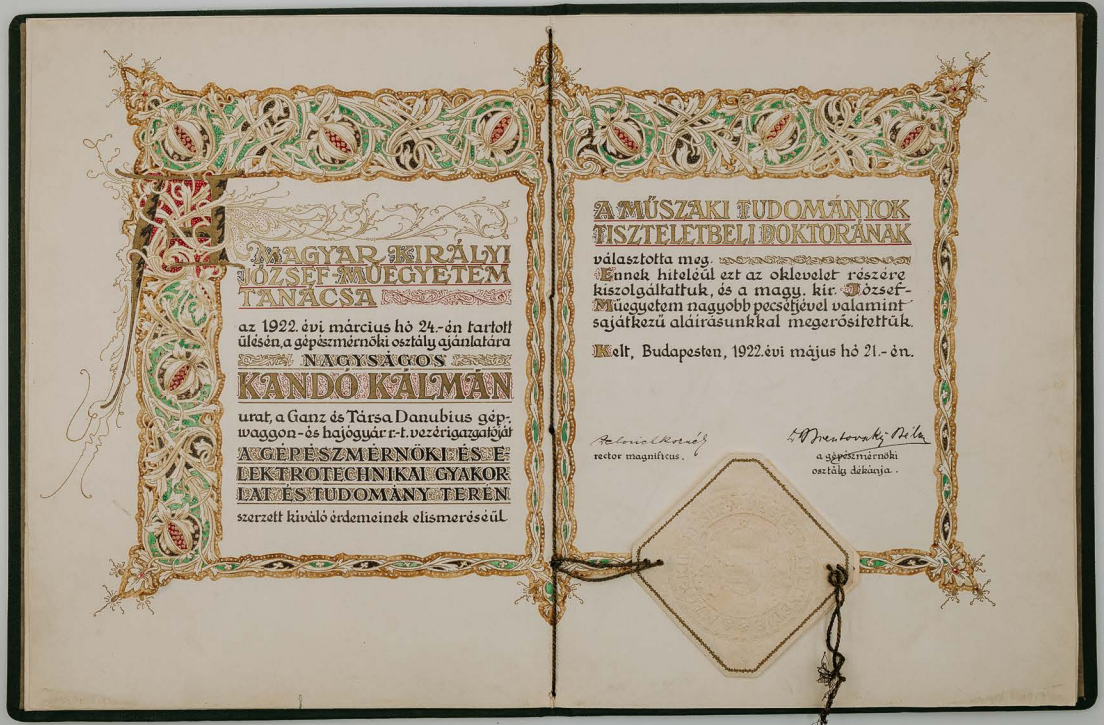 A MAGYAR KIRÁLYI
JÓZSEF-MŰEGYETEM
TANÁCSA
az 1922. évi március hó 24.-én tartott
ülésén, a gépészmérnöki osztály ajánlatára
NAGYSÁGOS
KANDÓ KÁLMÁN
urat, a Ganz és Társa Danubius gép-,
waggon-és hajógyár r.-t. vezérigazgatóját
A GÉPÉSZMÉRNÖKI ÉS E-
LEKTROTECHNIKAI GYAKOR-
LAT ÉS TUDOMÁNY TERÉN
szerzett kiváló érdemeinek elismeréséül
A MŰSZAKI TUDOMÁNYOK
TISZTELETBELI DOKTORÁNAK
választotta meg.
Ennek hiteléül ezt az oklevelet részére
kiszolgáltattuk, és a magy. kir. József-
Műegyetem nagyobb pecsétjével valamint
sajátkezű aláírásunkkal megerősítettük.
Kelt, Budapesten, 1922.évi május hó 21.-én.
rector magnificus.
a gépészmérnöki
osztály dékánja.